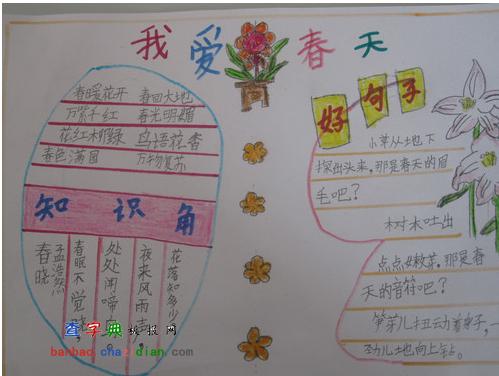 我爱春天
春暖花开 春回大地
万紫千红 春光明媚
花红柳绿 鸟语花香
春色满园 万物复苏
知识角
春晓
孟浩然
春眠不觉
处处闻啼
夜来风雨声
花落知多少
好句子
小草从地下
探出头来,那是春天的眉
毛吧?
树木吐出
点点嫩芽,那是春
天的音符吧?
笋芽儿扭动着身子,
劲儿地向上钻。
查字典 板报网
banbao.chazidian.com